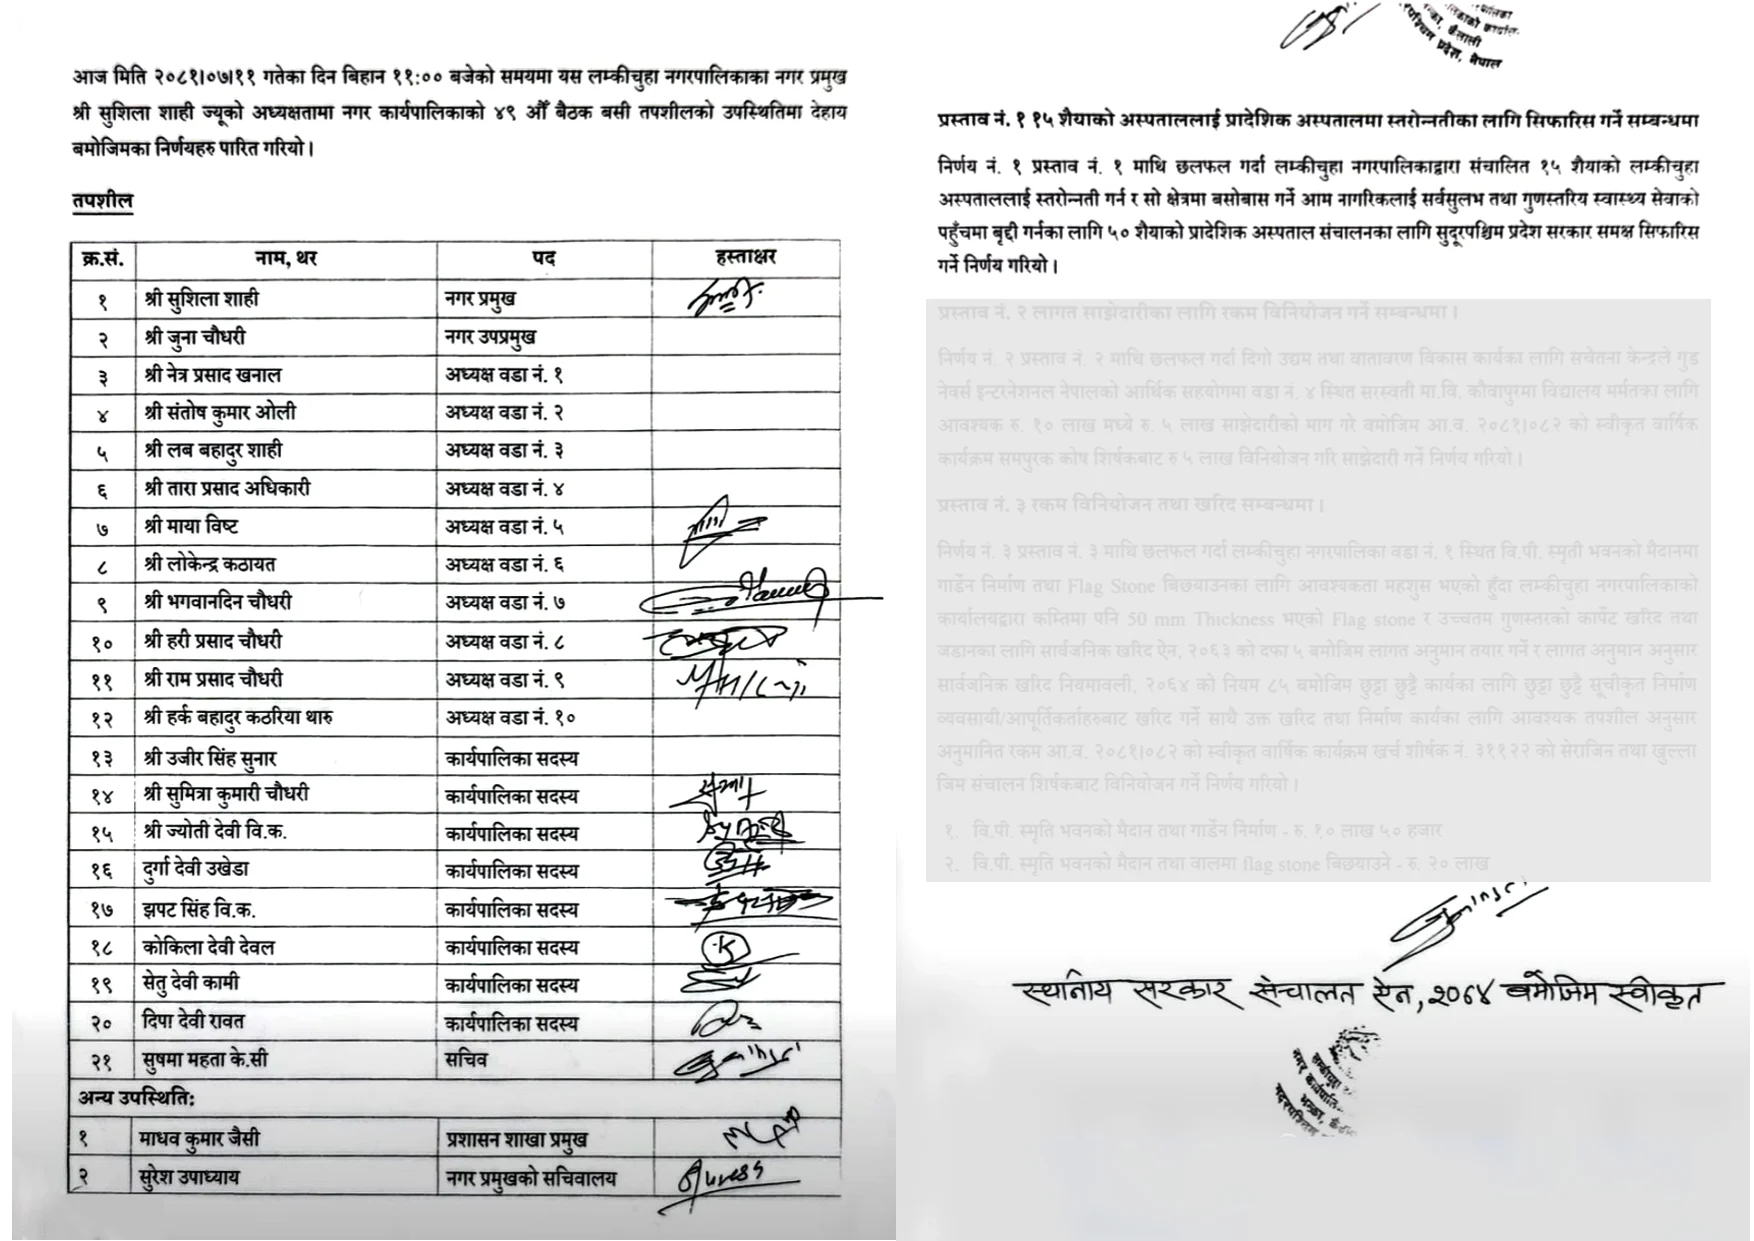 आज मिति २०८१।०७।११ गतेका दिन बिहान ११:०० बजेको समयमा यस लम्कीचुहा नगरपालिकाका नगर प्रमुख
श्री सुशिला शाही ज्यूको अध्यक्षतामा नगर कार्यपालिकाको ४९ औँ बैठक बसी तपशीलको उपस्थितिमा देहाय
बमोजिमका निर्णयहरु पारित गरियो।
तपशील
क्र.सं. नाम, थर पद हस्ताक्षर
१ श्री सुशिला शाही नगर प्रमुख
२ श्री जुना चौधरी नगर उपप्रमुख
३ श्री नेत्र प्रसाद खनाल अध्यक्ष वडा नं. १
४ श्री संतोष कुमार ओली अध्यक्ष वडा नं. २
५ श्री लब बहादुर शाही अध्यक्ष वडा नं. ३
६ श्री तारा प्रसाद अधिकारी अध्यक्ष वडा नं. ४
७ श्री माया विष्ट अध्यक्ष वडा नं. ५
८ श्री लोकेन्द्र कठायत अध्यक्ष वडा नं. ६
९ श्री भगवानदिन चौधरी अध्यक्ष वडा नं. ७
१० श्री हरी प्रसाद चौधरी अध्यक्ष वडा नं. ८
११ श्री राम प्रसाद चौधरी अध्यक्ष वडा नं. ९
१२ श्री हर्क बहादुर कठरिया थारु अध्यक्ष वडा नं. १०
१३ श्री उजीर सिंह सुनार कार्यपालिका सदस्य
१४ श्री सुमित्रा कुमारी चौधरी कार्यपालिका सदस्य
१५ श्री ज्योती देवी वि.क. कार्यपालिका सदस्य
१६ दुर्गा देवी उखेडा कार्यपालिका सदस्य
१७ झपट सिंह वि.क. कार्यपालिका सदस्य
१८ कोकिला देवी देवल कार्यपालिका सदस्य
१९ सेतु देवी कामी कार्यपालिका सदस्य
२० दिपा देवी रावत कार्यपालिका सदस्य
२१ सुषमा महता के.सी सचिव
अन्य उपस्थिति:
१ माधव कुमार जैसी प्रशासन शाखा प्रमुख
२ सुरेश उपाध्याय नगर प्रमुखको सचिवालय
प्रस्ताव नं. १ १५ शैयाको अस्पताललाई प्रादेशिक अस्पतालमा स्तरोन्नतीका लागि सिफारिस गर्ने सम्बन्धमा
निर्णय नं. १ प्रस्ताव नं. १ माथि छलफल गर्दा लम्कीचुहा नगरपालिकाद्वारा संचालित १५ शैयाको लम्कीचुहा
अस्पताललाई स्तरोन्नती गर्न र सो क्षेत्रमा बसोबास गर्ने आम नागरिकलाई सर्वसुलभ तथा गुणस्तरिय स्वास्थ्य सेवाको
पहुँचमा बृद्दी गर्नका लागि ५० शैयाको प्रादेशिक अस्पताल संचालनका लागि सुदूरपश्चिम प्रदेश सरकार समक्ष सिफारिस
गर्ने निर्णय गरियो।
प्रस्ताव नं. २ लागत साझेदारीका लागि रकम विनियोजन गर्ने सम्बन्धमा।
निर्णय नं. २ प्रस्ताव नं. २ माथि छलफल गर्दा दिगो उद्यम तथा वातावरण विकास कार्यका लागि सचेतना केन्द्रले गुड
नेवर्स इन्टरनेशनल नेपालको आर्थिक सहयोगमा वडा नं. ४ स्थित सरस्वती मा.वि. कौवापुरमा विद्यालय मर्मतका लागि
आवश्यक रु. १० लाख मध्ये रु. ५ लाख साझेदारीको माग गरे बमोजिम आ.व. २०८१।०८२ को स्वीकृत वार्षिक
कार्यक्रम समपुरक कोष शिर्षकबाट रु ५ लाख विनियोजन गरि साझेदारी गर्ने निर्णय गरियो।
प्रस्ताव नं. ३ रकम विनियोजन तथा खरिद सम्बन्धमा।
निर्णय नं. ३ प्रस्ताव नं. ३ माथि छलफल गर्दा लम्कीचुहा नगरपालिका वडा नं. १ स्थित वि.पी. स्मृती भवनको मैदानमा
गार्डेन निर्माण तथा Flag Stone बिछयाउनका लागि आवश्यकता महशुस भएको हुँदा लम्कीचुहा नगरपालिकाको
कार्यालयद्वारा कम्तिमा पनि 50 mm Thickness भएको Flag stone र उच्चतम गुणस्तरको कार्पेट खरिद तथा
जडानका लागि सार्वजनिक खरिद ऐन, २०६३ को दफा ५ बमोजिम लागत अनुमान तयार गर्ने र लागत अनुमान अनुसार
सार्वजनिक खरिद नियमावली, २०६४ को नियम ८५ बमोजिम छुट्टा छुट्टै कार्यका लागि छुट्टा छुट्टै सूचीकृत निर्माण
व्यवसायी/आपूर्तिकर्ताहरुबाट खरिद गर्ने साथै उक्त खरिद तथा निर्माण कार्यका लागि आवश्यक तपशील अनुसार
अनुमानित रकम आ.व. २०८१।०८२ को स्वीकृत वार्षिक कार्यक्रम खर्च शीर्षक नं. ३११२२ को सेराजिन तथा खुल्ला
जिम संचालन शिर्षकबाट विनियोजन गर्ने निर्णय गरियो।
१. वि.पी. स्मृति भवनको मैदान तथा गार्डेन निर्माण - रु. १० लाख ५० हजार
२. वि.पी. स्मृति भवनको मैदान तथा वालमा flag stone बिछयाउने - रु. २० लाख
स्थानीय सरकार संचालन ऐन, २०७४ बमोजिम स्वीकृत